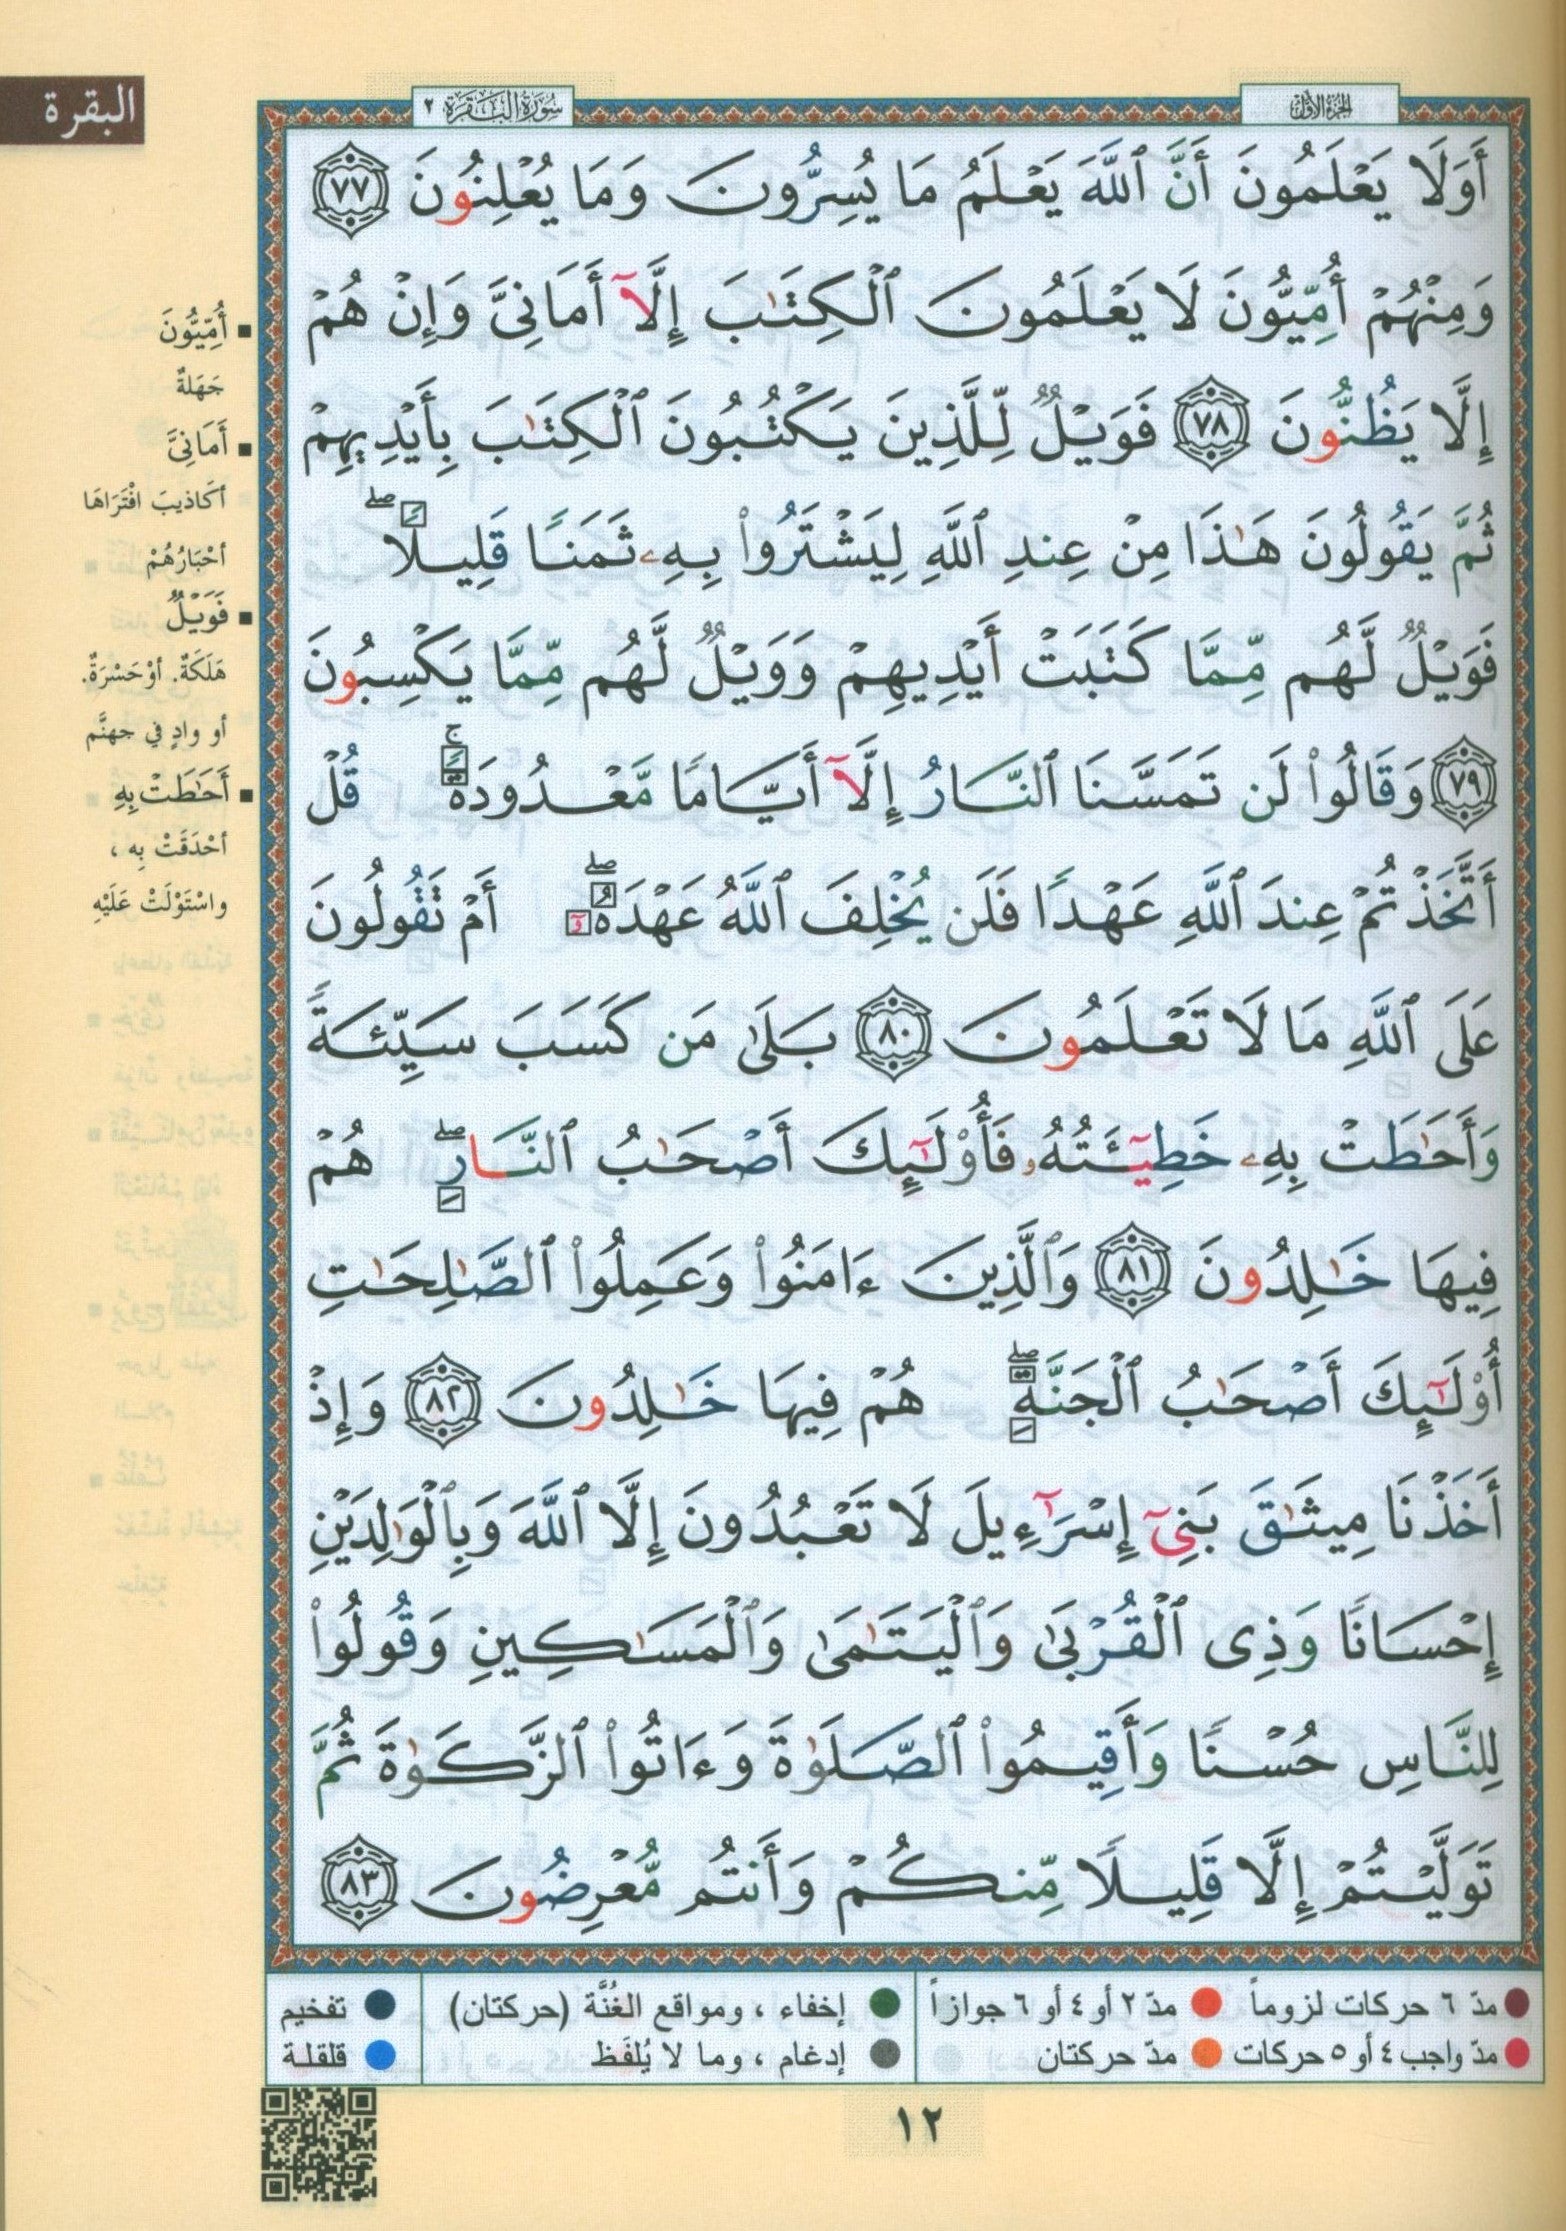 البقرة
سُورَةُ البَقَرَة ٢
الجزء الأول
أَوَلَا يَعْلَمُونَ أَنَّ ٱللَّهَ يَعْلَمُ مَا يُسِرُّونَ وَمَا يُعْلِنُونَ ٧٧
وَمِنْهُمْ أُمِّيُّونَ لَا يَعْلَمُونَ ٱلْكِتَٰبَ إِلَّآ أَمَانِىَّ وَإِنْ هُمْ
إِلَّا يَظُنُّونَ ٧٨ فَوَيْلٌ لِّلَّذِينَ يَكْتُبُونَ ٱلْكِتَٰبَ بِأَيْدِيهِمْ
ثُمَّ يَقُولُونَ هَٰذَا مِنْ عِندِ ٱللَّهِ لِيَشْتَرُوا۟ بِهِۦ ثَمَنًا قَلِيلًا ۖ
فَوَيْلٌ لَّهُم مِّمَّا كَتَبَتْ أَيْدِيهِمْ وَوَيْلٌ لَّهُم مِّمَّا يَكْسِبُونَ
٧٩ وَقَالُوا۟ لَن تَمَسَّنَا ٱلنَّارُ إِلَّآ أَيَّامًا مَّعْدُودَةً ۚ قُلْ
أَتَّخَذْتُمْ عِندَ ٱللَّهِ عَهْدًا فَلَن يُخْلِفَ ٱللَّهُ عَهْدَهُۥٓ ۖ أَمْ تَقُولُونَ
عَلَى ٱللَّهِ مَا لَا تَعْلَمُونَ ٨٠ بَلَىٰ مَن كَسَبَ سَيِّئَةً
وَأَحَٰطَتْ بِهِۦ خَطِيٓـَٔتُهُۥ فَأُو۟لَٰٓئِكَ أَصْحَٰبُ ٱلنَّارِ ۖ هُمْ
فِيهَا خَٰلِدُونَ ٨١ وَٱلَّذِينَ ءَامَنُوا۟ وَعَمِلُوا۟ ٱلصَّٰلِحَٰتِ
أُو۟لَٰٓئِكَ أَصْحَٰبُ ٱلْجَنَّةِ ۖ هُمْ فِيهَا خَٰلِدُونَ ٨٢ وَإِذْ
أَخَذْنَا مِيثَٰقَ بَنِىٓ إِسْرَٰٓءِيلَ لَا تَعْبُدُونَ إِلَّا ٱللَّهَ وَبِٱلْوَٰلِدَيْنِ
إِحْسَانًا وَذِى ٱلْقُرْبَىٰ وَٱلْيَتَٰمَىٰ وَٱلْمَسَٰكِينِ وَقُولُوا۟
لِلنَّاسِ حُسْنًا وَأَقِيمُوا۟ ٱلصَّلَوٰةَ وَءَاتُوا۟ ٱلزَّكَوٰةَ ثُمَّ
تَوَلَّيْتُمْ إِلَّا قَلِيلًا مِّنكُمْ وَأَنتُم مُّعْرِضُونَ ٨٣
■ أُمِّيُّونَ
جَهَلةٌ
■ أَمَانِىَّ
أكَاذيبَ افْتَرَاهَا
أحْبَارُهُمْ
■ فَوَيْلٌ
هَلَكَةٌ. أوْ حَسْرَةٌ.
أو وادٍ في جهنَّم
■ أَحَٰطَتْ بِهِ
أحْدَقَتْ بِه ،
واسْتَوْلَتْ عَلَيْهِ
مدّ ٦ حركات لزوماً مدّ ٢ أو ٤ أو ٦ جوازاً
مدّ واجب ٤ أو ٥ حركات مدّ حركتان
إخفاء ، ومواقع الغُنَّة (حركتان)
إدغام ، وما لا يُلفَظ
تفخيم
قلقلة
١٢